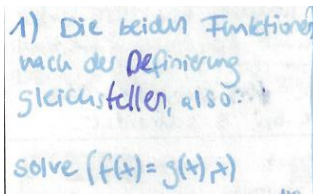 1) Die beiden Funktionen
nach der Definierung
gleichstellen, also:
solve (f(x) = g(x), x)